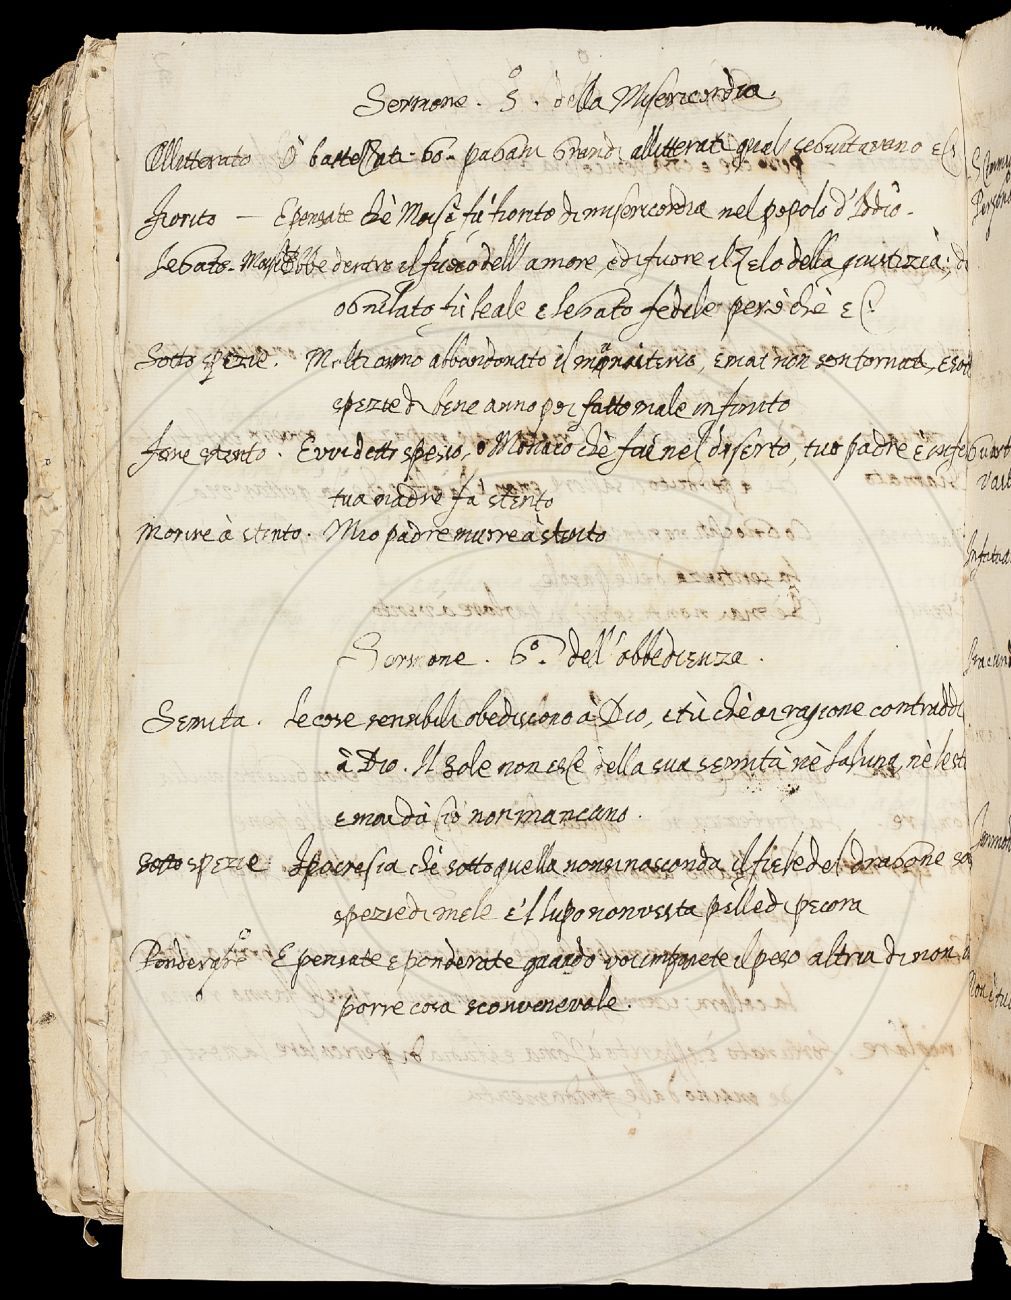 Sermone . 5.o della Misericordia.
Allitterato Ò battezzati 60 pagani grandi allitterati quali seguitavano &c
Fiorito — E pensate chè Moisè fù fiorito di misericordia nel popolo d'Iddio.
Legato. Moisè ebbe dentro il fuoco dell'amore, e di fuore il Zelo della giustizia;
ogni lato fù leale e legato fedele però chè &c
Sotto spezie. Molti anno abbandonato il monasterio, e mai non son tornati, e sott
spezie di bene anno poi fatto male infinito
Fare stento. E vvi detto spesso, o Monaco chè fai nel diserto, tuo padre è infe
tua madre fa stento
Morire à stento. Mio padre muore à stento
Sermone . 6.o dell'obbedienza.
Semita. Le cose sensibili obediscono à Dio, e tù chè ai ragione contraddi
à Dio. Il sole non esce della sua semità nè la luna, nè le st
e mai da ciò non mancano.
Sotto spezie Ipocresia chè sotto quella non si nasconda il fiele del dragone so
spezie di mele e 'l lupo non vesta pelle di pecora
Ponderare E pensate e ponderate quando voi imponete il peso altrui di non
porre cosa sconvenevole.